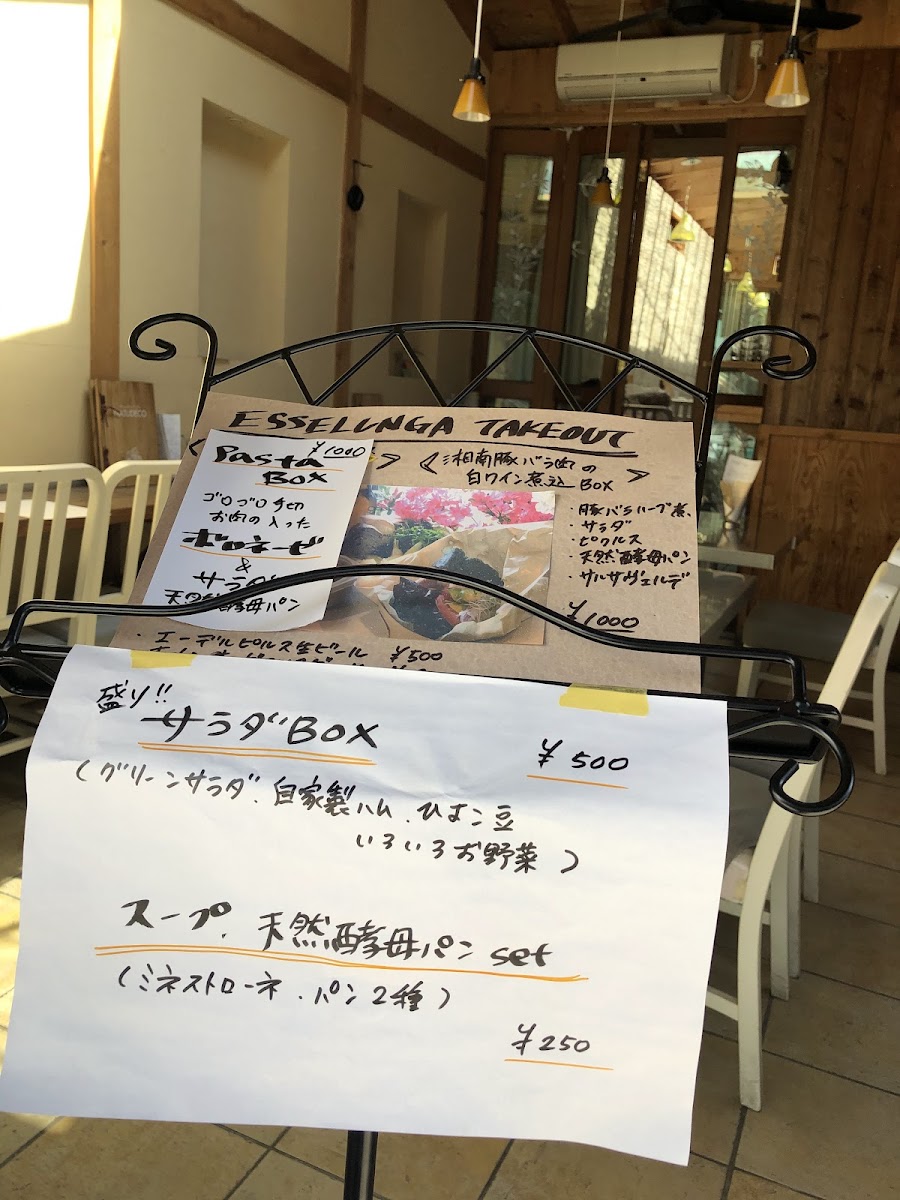 ESSELUNGA TAKEOUT
¥1000
Pasta
BOX
ゴロゴロ手切
お肉の入った
ボロネーゼ
&
サラダ
天然酵母パン
《湘南豚バラ肉の
白ワイン煮込 BOX》
・豚バラハーブ煮、
・サラダ
・ピクルス
・天然酵母パン
・サルサヴェルデ
¥1000
・エーデルピルス生ビール ¥500
盛り!!
サラダBOX
¥500
(グリーンサラダ、自家製ハム、ひよこ豆
いろいろお野菜)
スープ、天然酵母パン set
(ミネストローネ、パン2種)
¥250